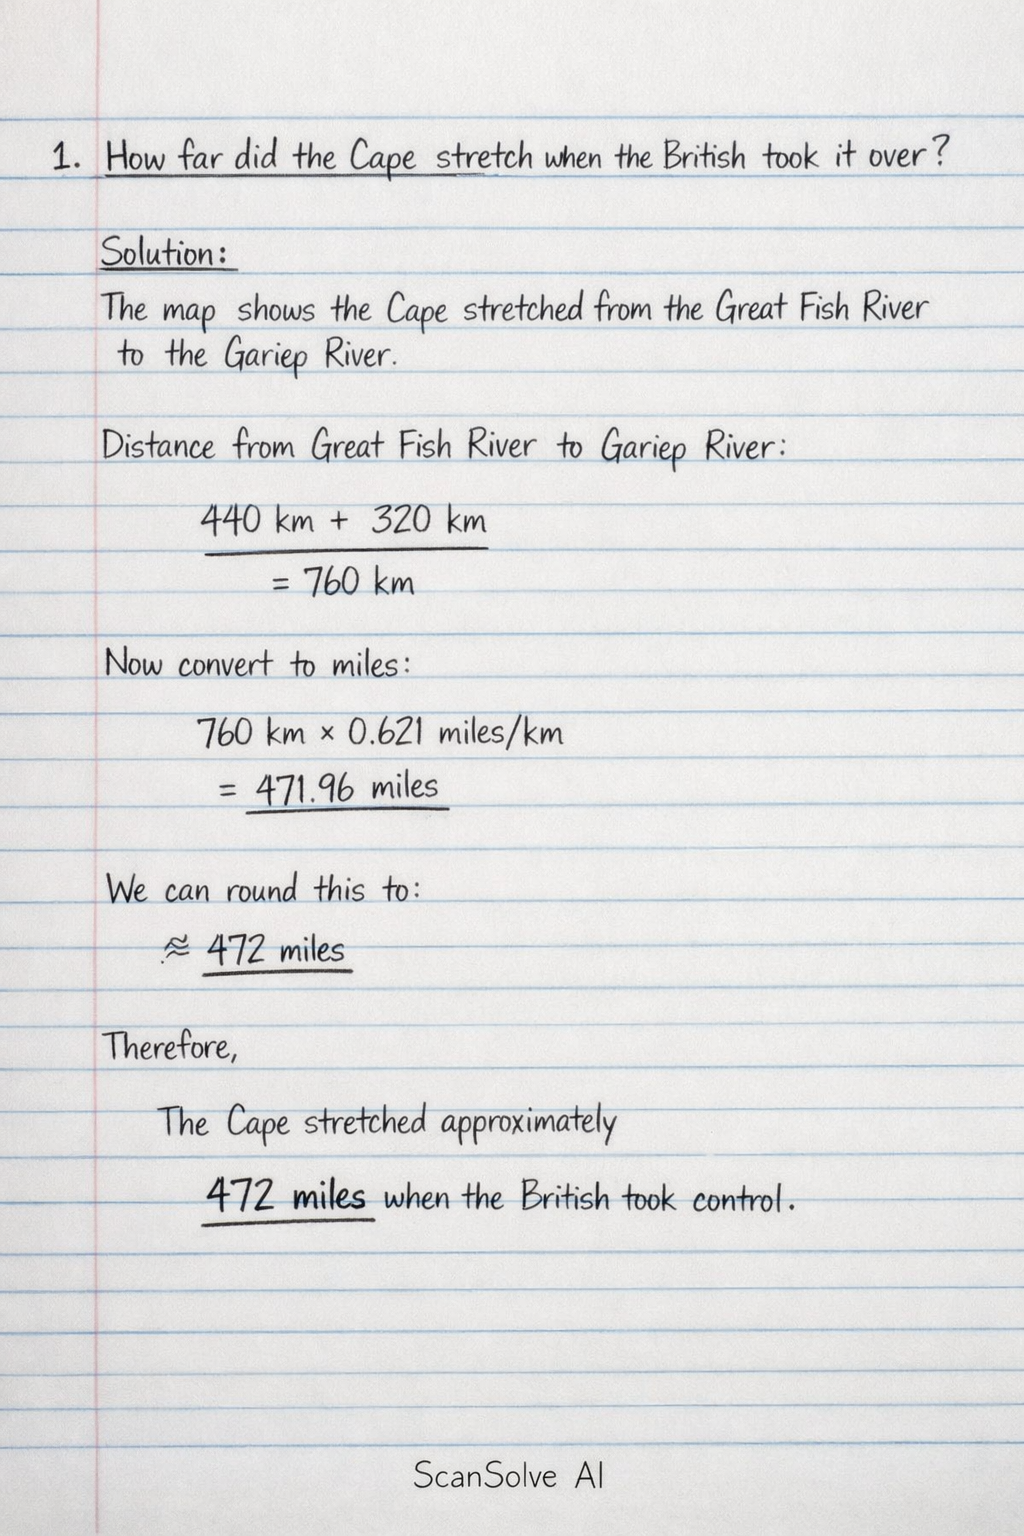 1. How far did the Cape stretch when the British took it over?
Solution:
The map shows the Cape stretched from the Great Fish River
to the Gariep River.
Distance from Great Fish River to Gariep River:
440 km + 320 km
= 760 km
Now convert to miles:
760 km × 0.621 miles/km
= 471.96 miles
We can round this to:
≈ 472 miles
Therefore,
The Cape stretched approximately
472 miles when the British took control.
ScanSolve AI